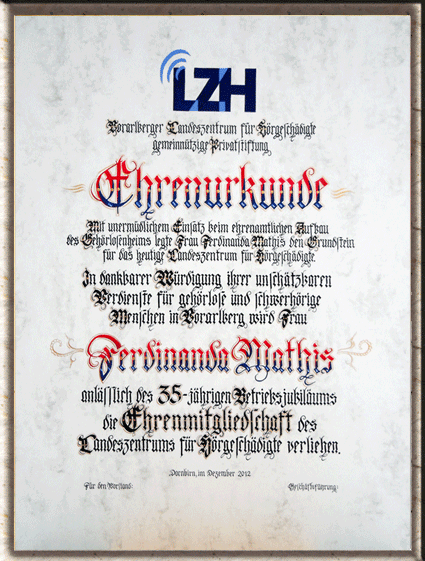 LZH
Vorarlberger Landeszentrum für Hörgeschädigte
gemeinnützige Privatstiftung
Ehrenurkunde
Mit unermüdlichem Einsatz beim ehrenamtlichen Aufbau
des Gehörlosenheims legte Frau Ferdinanda Mathis den Grundstein
für das heutige Landeszentrum für Hörgeschädigte.
In dankbarer Würdigung ihrer unschätzbaren
Verdienste für gehörlose und schwerhörige
Menschen in Vorarlberg wird Frau
Ferdinanda Mathis
anlässlich des 35-jährigen Betriebsjubiläums
die Ehrenmitgliedschaft des
Landeszentrums für Hörgeschädigte verliehen.
Dornbirn, im Dezember 2012
Für den Vorstand:
Geschäftsführung: